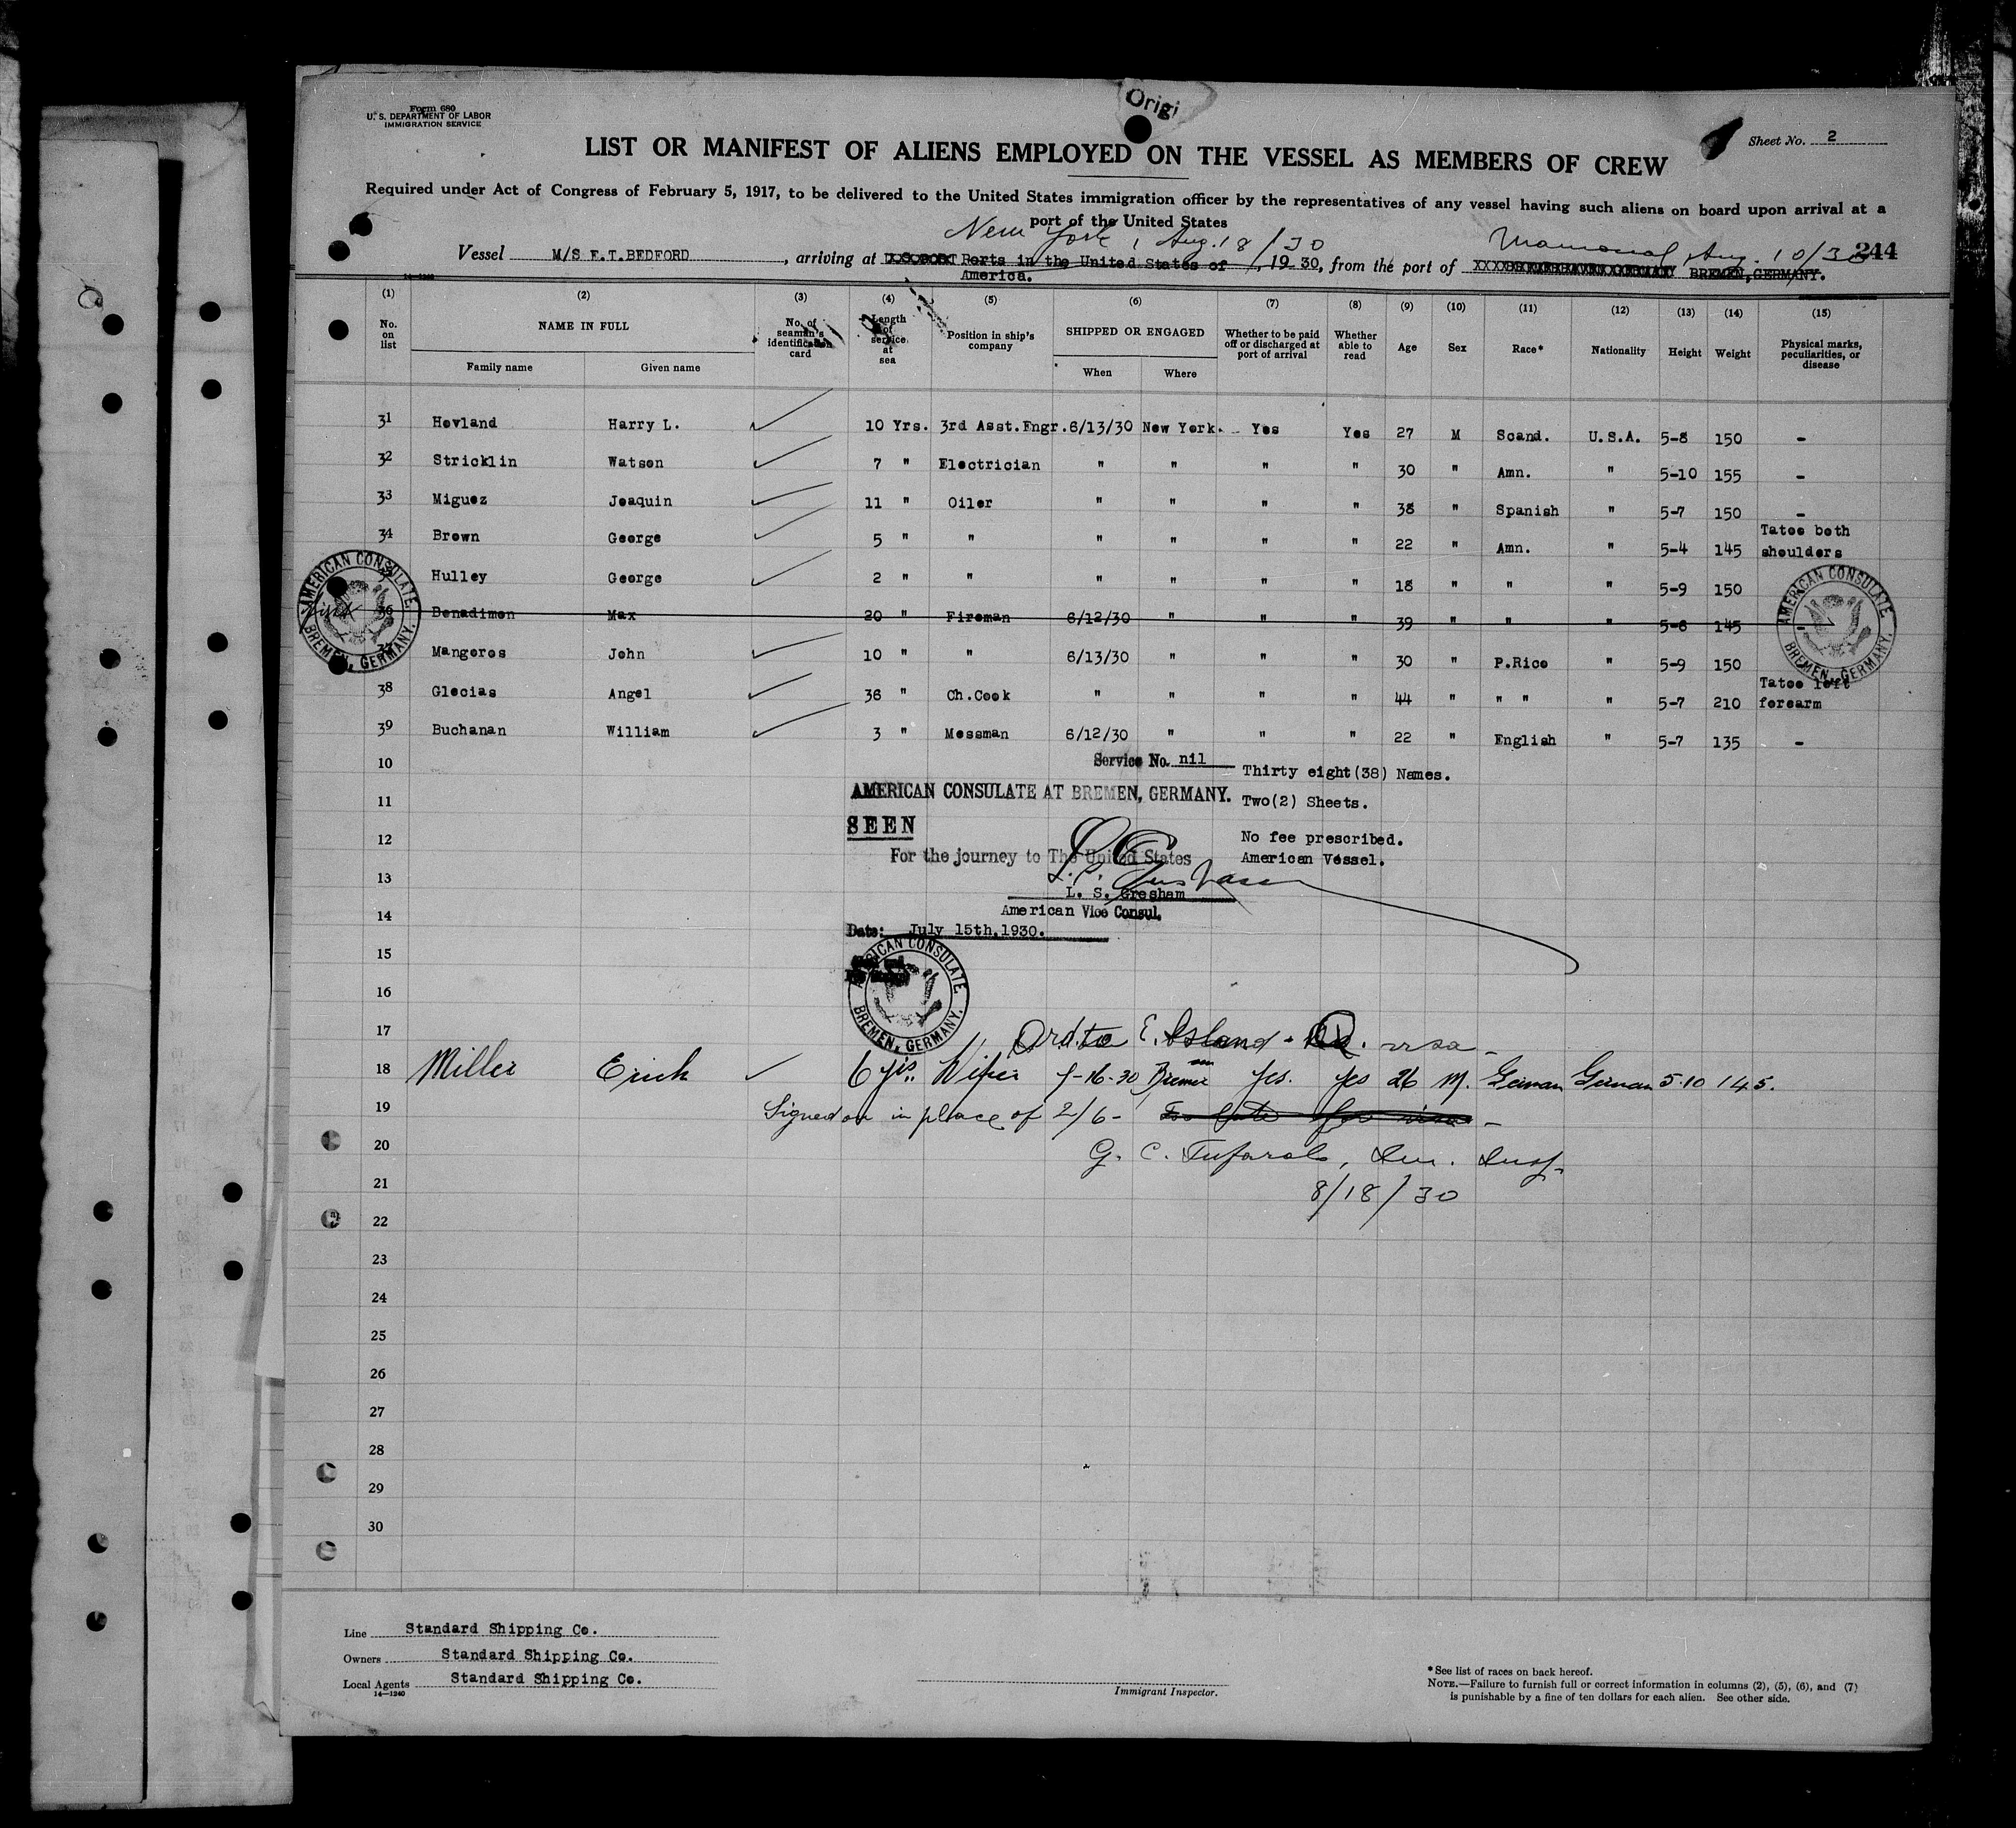 Form 680
U. S. DEPARTMENT OF LABOR
IMMIGRATION SERVICE
Origi
Sheet No. 2
LIST OR MANIFEST OF ALIENS EMPLOYED ON THE VESSEL AS MEMBERS OF CREW
Required under Act of Congress of February 5, 1917, to be delivered to the United States immigration officer by the representatives of any vessel having such aliens on board upon arrival at a
port of the United States
New York, Aug. 18/30 Mamonal, Aug. 10/30 244
Vessel M/S E.T.BEDFORD, arriving at Ports in the United States of America., 19 30, from the port of BREMEN, GERMANY.
14-1240
(1) (2) (3) (4) (5) (6) (7) (8) (9) (10) (11) (12) (13) (14) (15)
No. on list NAME IN FULL No. of seaman's identification card Length of service at sea Position in ship's company SHIPPED OR ENGAGED Whether to be paid off or discharged at port of arrival Whether able to read Age Sex Race* Nationality Height Weight Physical marks, peculiarities, or disease
Family name Given name When Where
31 Hovland Harry L. 10 Yrs. 3rd Asst.Engr. 6/13/30 New York. Yes Yes 27 M Scand. U.S.A. 5-8 150 -
32 Stricklin Watson 7 " Electrician " " " " 30 " Amn. " 5-10 155 -
33 Miguez Joaquin 11 " Oiler " " " " 38 " Spanish " 5-7 150 -
34 Brown George 5 " " " " " " 22 " Amn. " 5-4 145 Tatoo both shoulders
Hulley George 2 " " " " " " 18 " " " 5-9 150
36 Benadimon Max 20 " Fireman 6/12/30 " " " 39 " " " 5-6 145 -
37 Mangeros John 10 " " 6/13/30 " " " 30 " P.Rico " 5-9 150
38 Glecias Angel 36 " Ch.Cook " " " " 44 " " " " 5-7 210 Tatoo left forearm
39 Buchanan William 3 " Messman 6/12/30 " " " 22 " English " 5-7 135 -
AMERICAN CONSULATE BREMEN, GERMANY.
AMERICAN CONSULATE BREMEN, GERMANY.
10 Service No. nil Thirty eight(38) Names.
11 AMERICAN CONSULATE AT BREMEN, GERMANY. Two(2) Sheets.
12 SEEN No fee prescribed.
For the journey to The United States American Vessel.
13
L. S. Gresham
14 American Vice Consul.
Date: July 15th, 1930.
15 AMERICAN CONSULATE BREMEN, GERMANY.
16
17 Ord. to E. Island - visa -
18 Miller Erich 6 yrs. Wiper 7-16-30 Bremen Yes. Yes 26 M. German German 5-10 145.
19 Signed on in place of 2/6 - Too late for visa -
20 G. C. Imm. Insp.
21 8/18/30
22
23
24
25
26
27
28
29
30
Line Standard Shipping Co.
Owners Standard Shipping Co.
Local Agents Standard Shipping Co.
14-1240
Immigrant Inspector.
*See list of races on back hereof.
NOTE.—Failure to furnish full or correct information in columns (2), (5), (6), and (7)
is punishable by a fine of ten dollars for each alien. See other side.